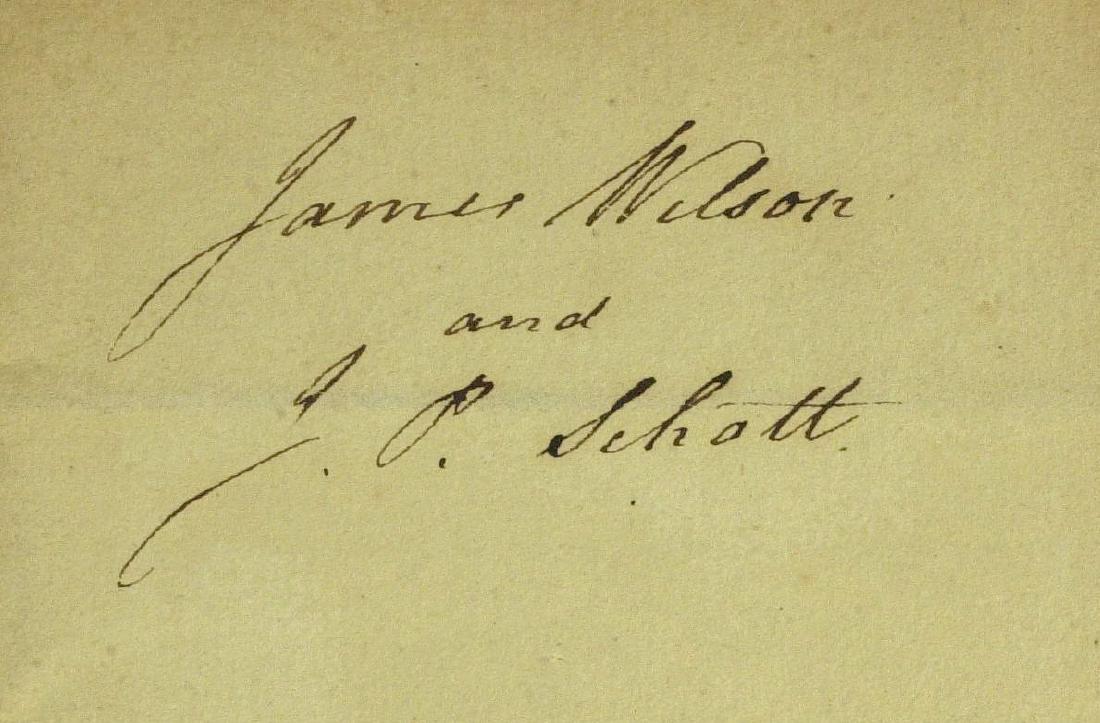 James Wilson
and
J. P. Schott.